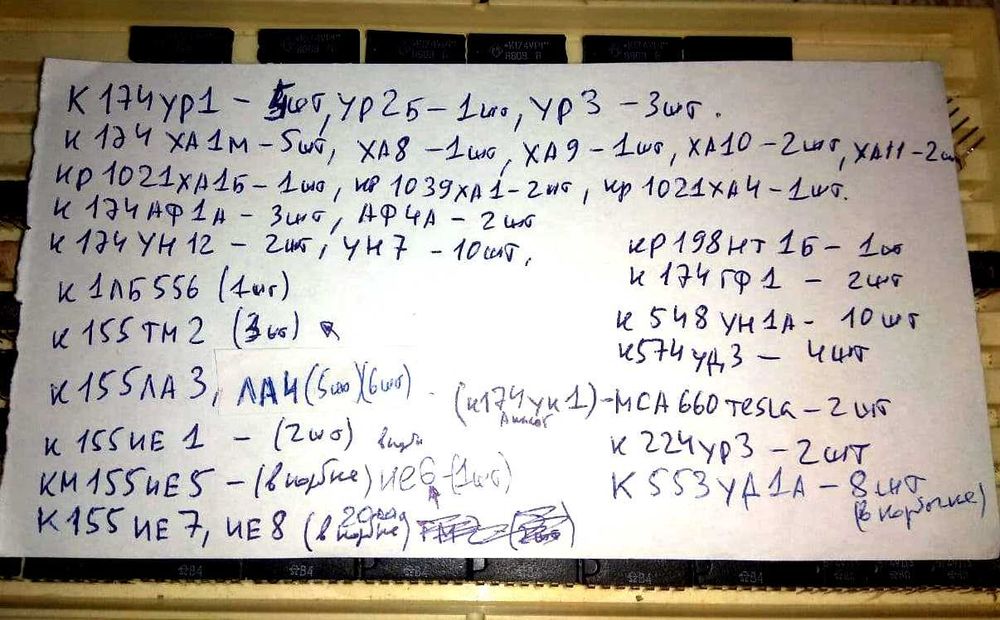 К174УР1
8609
К174УР1 - 5шт, УР2Б - 1шт, УР3 - 3шт.
К174 ХА1М - 5шт, ХА8 - 1шт, ХА9 - 1шт, ХА10 - 2шт, ХА11 - 2шт
КР1021ХА1Б - 1шт, КР1039ХА1 - 2шт, КР1021ХА4 - 1шт.
К174АФ1А - 3шт, АФ4А - 2шт
К174УН12 - 2шт, УН7 - 10шт,
К1ЛБ556 (1шт)
К155ТМ2 (3шт)
К155ЛА3, ЛА4 (5шт)(6шт)
К155ИЕ1 - (2шт)
КМ155ИЕ5 - (в коробке) ИЕ6 - (1шт)
К155ИЕ7, ИЕ8 (в коробке)
КР198НТ1Б - 1шт
К174ГФ1 - 2шт
К548УН1А - 10шт
К574УД3 - 4шт
(К174УК1) - MCA660 Tesla - 2шт
Аналог
К224УР3 - 2шт
К553УД1А - 8шт
(в коробочке)
В4
В4
В4
В4